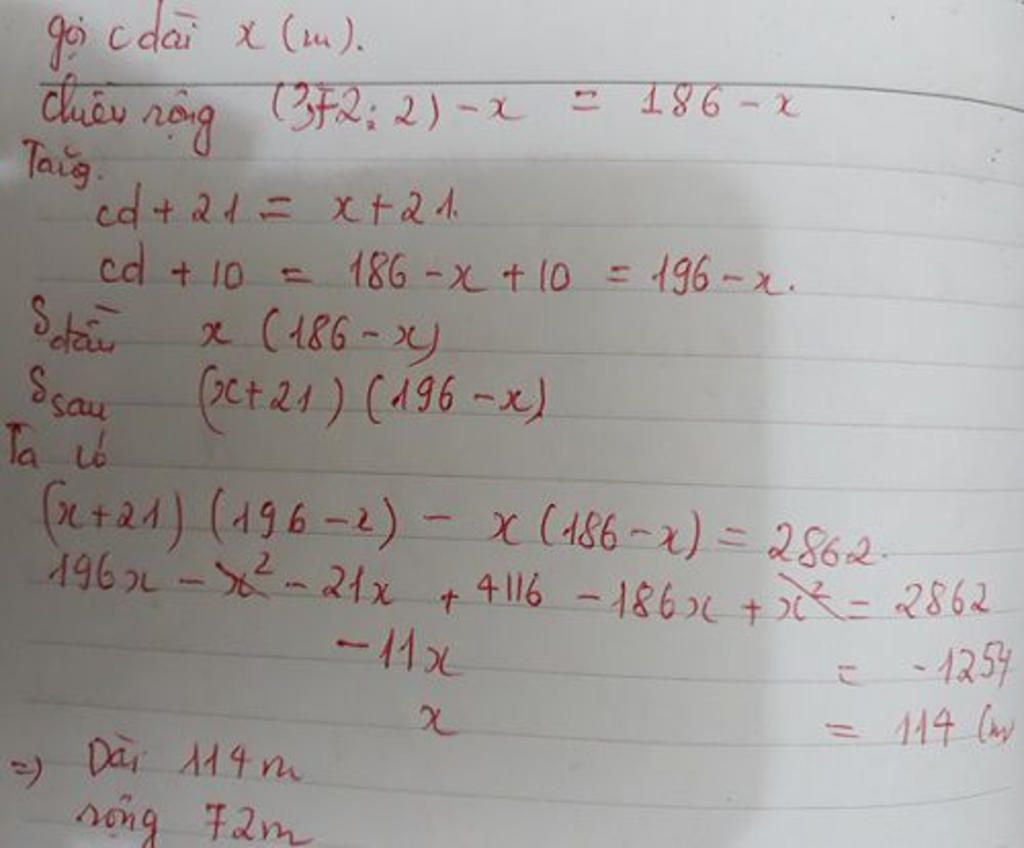 gọi c dài x (m).
chiều rộng (372 : 2) - x = 186 - x
Tăng.
cd + 21 = x + 21.
cd + 10 = 186 - x + 10 = 196 - x.
S đầu x (186 - x)
S sau (x + 21) (196 - x)
Ta có
(x + 21) (196 - x) - x (186 - x) = 2862.
196x - x² - 21x + 4116 - 186x + x² = 2862
-11x = -1254
x = 114 (m)
=) Dài 114 m
rộng 72m